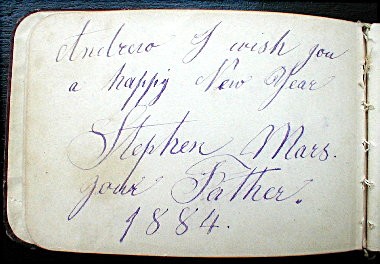 Andrew I wish you
a happy New Year
Stephen Mars.
your Father.
1884.